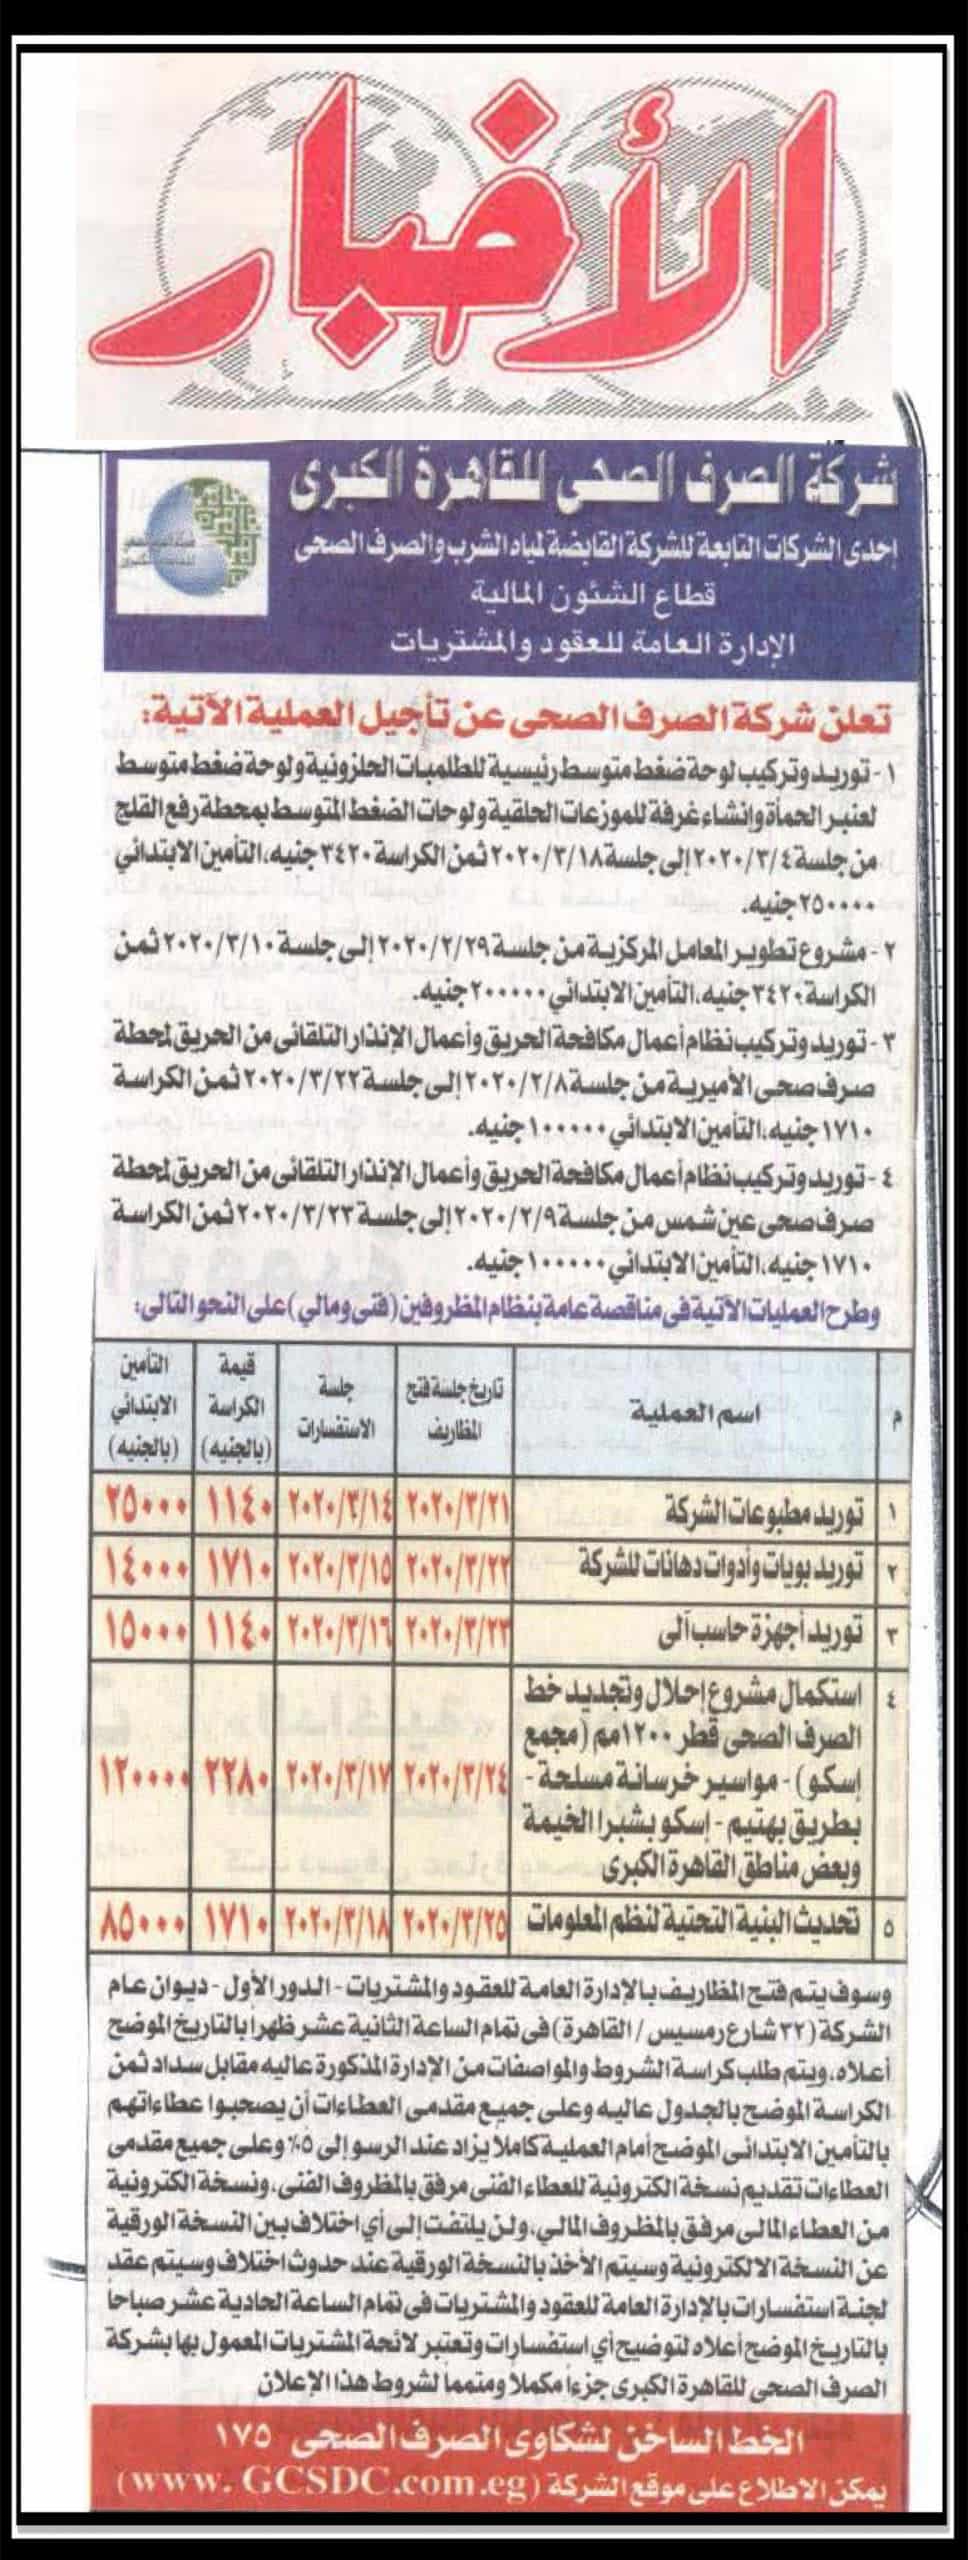 الأخبار
شركة الصرف الصحى للقاهرة الكبرى
إحدى الشركات التابعة للشركة القابضة لمياه الشرب والصرف الصحى
قطاع الشئون المالية
الإدارة العامة للعقود والمشتريات
تعلن شركة الصرف الصحى عن تأجيل العملية الآتية:
١- توريد وتركيب لوحة ضغط متوسط رئيسية للطلمبات الحلزونية ولوحة ضغط متوسط
لعنبر الحمأة وإنشاء غرفة للموزعات الحلقية ولوحات الضغط المتوسط بمحطة رفع القلج
من جلسة ٢٠٢٠/٣/٤ إلى جلسة ٢٠٢٠/٣/١٨ ثمن الكراسة ٣٤٢٠ جنيه، التأمين الابتدائي
٢٥٠٠٠٠ جنيه.
٢- مشروع تطوير المعامل المركزية من جلسة ٢٠٢٠/٢/٢٩ إلى جلسة ٢٠٢٠/٣/١٠ ثمن
الكراسة ٣٤٢٠ جنيه، التأمين الابتدائي ٢٠٠٠٠٠ جنيه.
٣- توريد وتركيب نظام أعمال مكافحة الحريق وأعمال الإنذار التلقائى من الحريق لمحطة
صرف صحى الأميرية من جلسة ٢٠٢٠/٢/٨ إلى جلسة ٢٠٢٠/٣/٢٢ ثمن الكراسة
١٧١٠ جنيه، التأمين الابتدائي ١٠٠٠٠٠ جنيه.
٤- توريد وتركيب نظام أعمال مكافحة الحريق وأعمال الإنذار التلقائى من الحريق لمحطة
صرف صحى عين شمس من جلسة ٢٠٢٠/٢/٩ إلى جلسة ٢٠٢٠/٣/٢٣ ثمن الكراسة
١٧١٠ جنيه، التأمين الابتدائي ١٠٠٠٠٠ جنيه.
وطرح العمليات الآتية فى مناقصة عامة بنظام المظروفين (فنى ومالي) على النحو التالى:
م اسم العملية تاريخ جلسة فتح المظاريف جلسة الاستفسارات قيمة الكراسة (بالجنيه) التأمين الابتدائي (بالجنيه)
١ توريد مطبوعات الشركة ٢٠٢٠/٣/٢١ ٢٠٢٠/٣/١٤ ١١٤٠ ٢٥٠٠٠
٢ توريد بويات وأدوات دهانات للشركة ٢٠٢٠/٣/٢٢ ٢٠٢٠/٣/١٥ ١٧١٠ ١٤٠٠٠
٣ توريد أجهزة حاسب آلى ٢٠٢٠/٣/٢٣ ٢٠٢٠/٣/١٦ ١١٤٠ ١٥٠٠٠
٤ استكمال مشروع إحلال وتجديد خط
الصرف الصحى قطر ١٢٠٠مم (مجمع
إسكو) - مواسير خرسانة مسلحة - ٢٠٢٠/٣/٢٤ ٢٠٢٠/٣/١٧ ٢٢٨٠ ١٢٠٠٠٠
بطريق بهتيم - إسكو بشبرا الخيمة
وبعض مناطق القاهرة الكبرى
٥ تحديث البنية التحتية لنظم المعلومات ٢٠٢٠/٣/٢٥ ٢٠٢٠/٣/١٨ ١٧١٠ ٨٥٠٠٠
وسوف يتم فتح المظاريف بالإدارة العامة للعقود والمشتريات - الدور الأول - ديوان عام
الشركة (٣٢ شارع رمسيس / القاهرة) فى تمام الساعة الثانية عشر ظهرا بالتاريخ الموضح
أعلاه، ويتم طلب كراسة الشروط والمواصفات من الإدارة المذكورة عاليه مقابل سداد ثمن
الكراسة الموضح بالجدول عاليه وعلى جميع مقدمى العطاءات أن يصحبوا عطاءاتهم
بالتأمين الابتدائى الموضح أمام العملية كاملا يزاد عند الرسو إلى ٥٪ وعلى جميع مقدمى
العطاءات تقديم نسخة الكترونية للعطاء الفنى مرفق بالمظروف الفنى، ونسخة الكترونية
من العطاء المالى مرفق بالمظروف المالي، ولن يلتفت إلى أي اختلاف بين النسخة الورقية
عن النسخة الالكترونية وسيتم الأخذ بالنسخة الورقية عند حدوث اختلاف وسيتم عقد
لجنة استفسارات بالإدارة العامة للعقود والمشتريات فى تمام الساعة الحادية عشر صباحا
بالتاريخ الموضح أعلاه لتوضيح أي استفسارات وتعتبر لائحة المشتريات المعمول بها بشركة
الصرف الصحى للقاهرة الكبرى جزءا مكملا ومتمما لشروط هذا الإعلان
الخط الساخن لشكاوى الصرف الصحى ١٧٥
يمكن الاطلاع على موقع الشركة (www. GCSDC.com.eg)